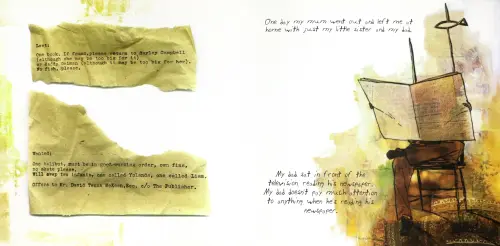 Lost:
One book. If found, please return to Hayley Campbell
(although she may be too big for it)
or Maddy Gaiman (although it may be too big for her).
No fish, please.
Wanted:
One tallboy, must be in good working order, own fins,
no skate please.
Will swap two
one called Yolanda, one called Liam.
Offers to Mr. David Tench Watson, Esq. c/o The Publisher.
One day my mum went out and left me at
home with just my little sister and my dad.
My dad sat in front of the
television reading his newspaper.
My dad doesn't pay much attention
to anything when he's reading his
newspaper.